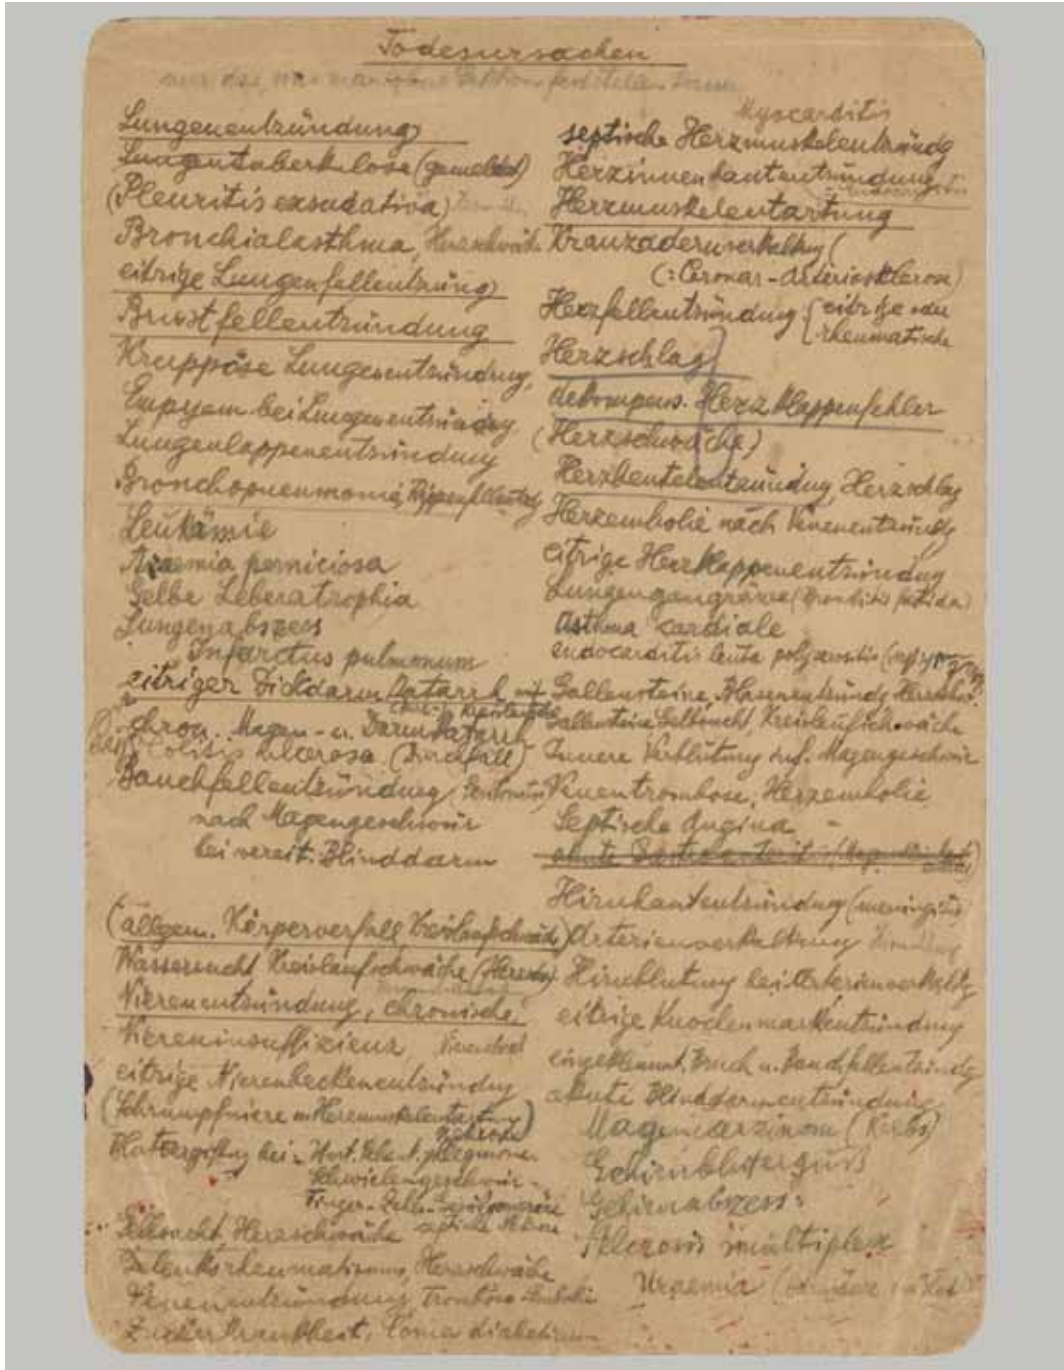 Todesursachen
nur das, was man ohne Sektion feststellen kann
Lungenentzündung
Lungentuberkulose (gemeldet)
(Pleuritis exsudativa)
Bronchialasthma, Herzschwäche
eitrige Lungenfellentzündg
Brustfellentzündung
Kruppöse Lungenentzündung,
Empyem bei Lungenentzündg
Lungenlappenentzündung
Bronchopneumonie, Rippenfellentzdg
Leukämie
Anaemia perniciosa
Gelbe Leberatrophia
Lungenabszess
Infarctus pulmonum
eitriger Dickdarmkatarrh mit
chron. Magen- u. Darmkatarrh
Colitis ulcerosa (Durchfall)
Bauchfellentzündung,
nach Magengeschwür
bei vereit. Blinddarm
(allgem. Körperverfall, Kreislaufschwäche)
Wassersucht Kreislaufschwäche
Nierenentzündung, chronische,
Niereninsuffizienz
eitrige Nierenbeckenentzündg
(Schrumpfniere m Herzmuskelentartung)
Blutvergiftg bei
Finger-
septische
Gelbsucht, Herzschwäche
Gelenksrheumatismus, Herzschwäche
Venenentzündung,
Zuckerkrankheit, Coma diabeticum
Myocarditis
septische Herzmuskelentzündg
Herzinnenhautentzündung
Herzmuskelentartung
Kranzadernverkalkg (
(: Coronar-Arteriosklerose)
Herzfellentzündung { eitrige oder
rheumatische
Herzschlag
dekompens. Herzklappenfehler
(Herzschwäche)
Herzbeutelentzündung, Herzschlag
Herzembolie nach Venenentzündg
eitrige Herzklappenentzündung
Lungengangräne
Asthma cardiale
endocarditis lenta
Gallensteine, Blasenentzündg
Gelbsucht, Kreislaufschwäche
Innere Verblutung inf. Magengeschwür
Venentrombose, Herzembolie
Septische Angina
Hirnhautentzündung (meningitis
Arterienverkalkung
Hirnblutung bei Arterienverkalkg
eitrige Knochenmarkentzündung
eingeklemmt. Bruch u. Bauchfellentzündg
akute Blinddarmentzündung
Magencarzinom (Krebs)
Gehirnbluterguß
Gehirnabszess:
Sklerosis multiplex
Uraemia